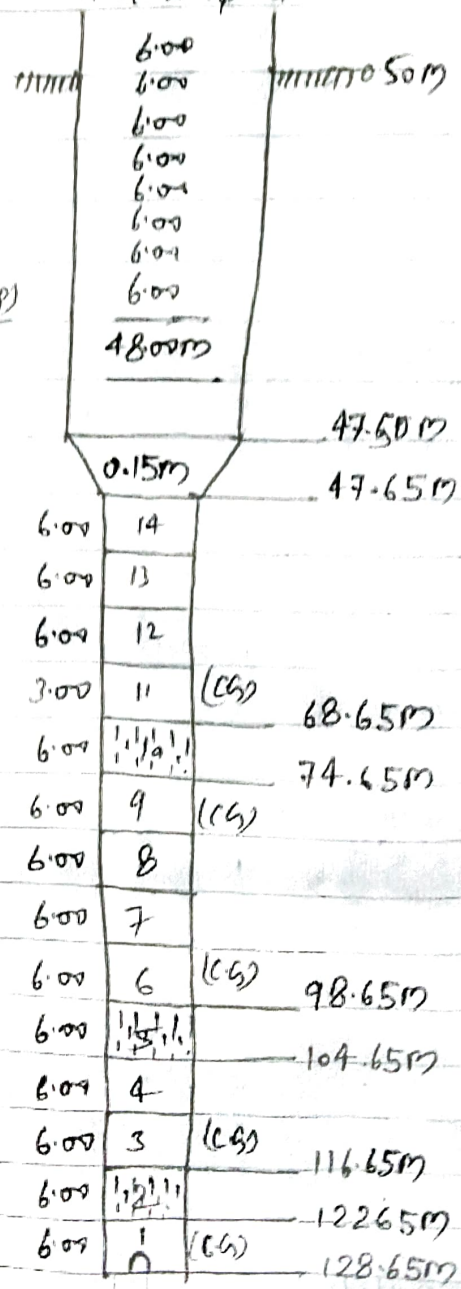 6.00
6.00 0.50m
6.00
6.00
6.00
6.00
6.00
6.00
48.00m
47.50m
0.15m
47.65m
6.00 14
6.00 13
6.00 12
3.00 11 (CG)
68.65m
6.00 10
74.65m
6.00 9 (CG)
6.00 8
6.00 7
6.00 6 (CG)
98.65m
6.00 5
104.65m
6.00 4
6.00 3 (CG)
116.65m
6.00 2
122.65m
6.00 1 (CG)
128.65m